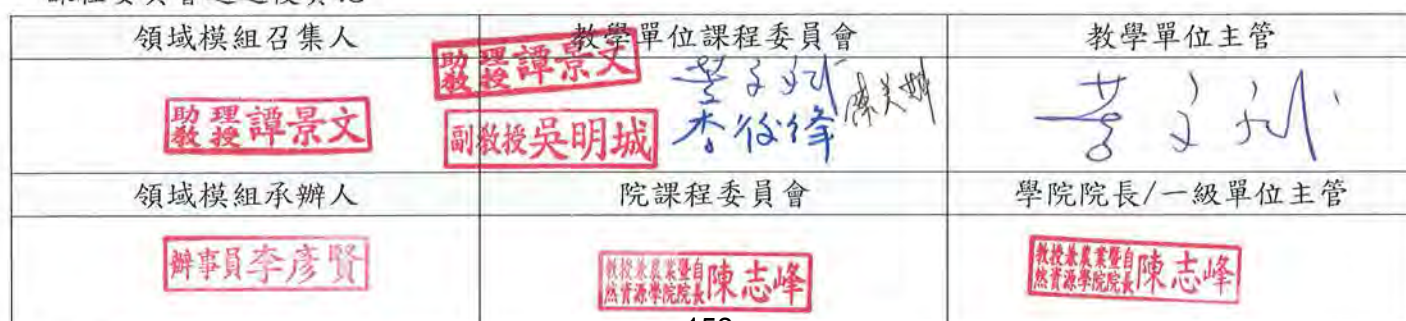 領域模組召集人 教學單位課程委員會 教學單位主管
助理教授譚景文
助理教授譚景文
副教授吳明城
領域模組承辦人 院課程委員會 學院院長/一級單位主管
辦事員李彥賢
教授兼農業暨自然資源學院院長陳志峰
教授兼農業暨自然資源學院院長陳志峰